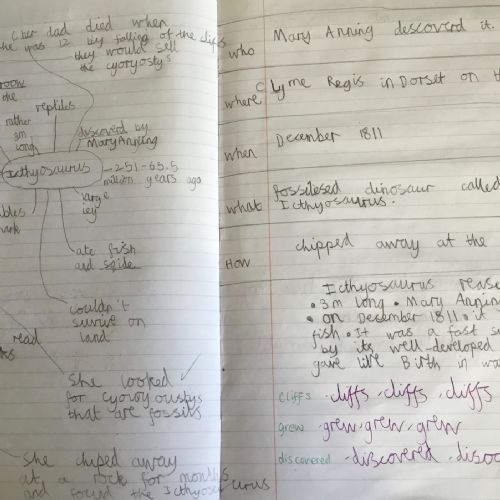 (her dad died when
she was 12 by falling of the cliffs
they would sell
the cyoryosty's
the
reptiles
rather
3m
long
discoverd by
Mary Anning
Icthyosaurus
251-65.5
million years ago
large
eey
ate fish
and squide
couldn't
survive on
land
read
She looked
for cyoryoustys
that are fossils
she chiped away
at a rock for months
and found the Icthyosaurus
who
Mary Anning descoverd it.
where
Lyme Regis in Dorset on th
when
December 1811
what
fossilesed dinosaur called
Icthyosaurus.
How
chipped away at the
Icthyosaurus
• 3m long • Mary Anning
• on December 1811 • it
fish • It was a fast s
by its well-developed
gave live Birth in wa
cliffs · cliffs · cliffs · cliffs
grew · grew · grew · grew
discovered · discovered · disco